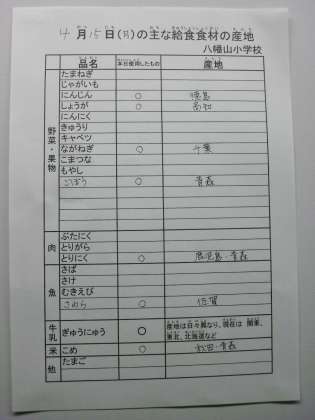 4月15日(月)の主な給食食材の産地
八幡山小学校
品名 本日使用したもの 産地
野菜・果物
たまねぎ
じゃがいも
にんじん ○ 徳島
しょうが ○ 高知
にんにく
きゅうり
キャベツ
ながねぎ ○ 千葉
こまつな
もやし
ごぼう ○ 青森
肉
ぶたにく
とりがら
とりにく ○ 鹿児島・青森
魚
さば
さけ
むきえび
さわら ○ 佐賀
牛乳 ぎゅうにゅう ○ 産地は日々異なり、現在は 関東、
東北、北海道など
米 こめ ○ 秋田・青森
他 たまご